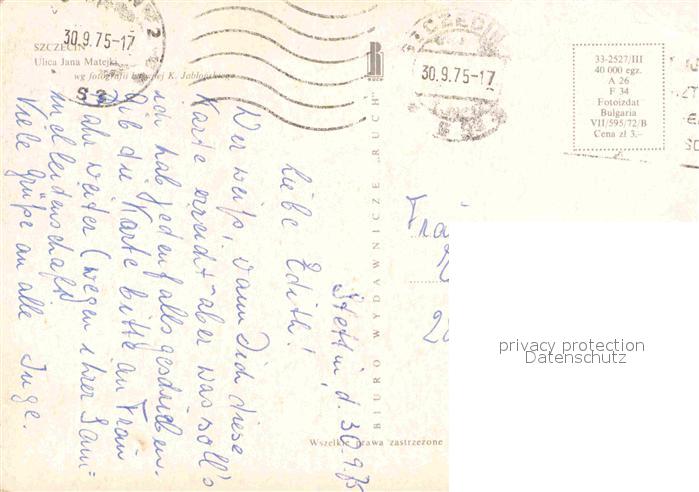 SZCZECIN
Ulica Jana Matejki
wg fotografii barwnej K. Jabłońskiego
30.9.75-17
SZCZECIN
30.9.75-17
33-2527/III
40 000 egz.
A 26
F 34
Fotoizdat
Bulgaria
VII/595/72/B
Cena zł 3,—
BIURO WYDAWNICZE „RUCH"
Wszelkie prawa zastrzeżone
Stettin, d. 30.9.75
Liebe Edith!
Wer weiß, wann Dich diese
Karte erreicht - aber was soll's
ich hab jedenfalls geschrieben.
Gib die Karte bitte an Frau
weiter (wegen ihrer Sam=
melleidenschaft)
Viele Grüße an alle Inge.
privacy protection
Datenschutz